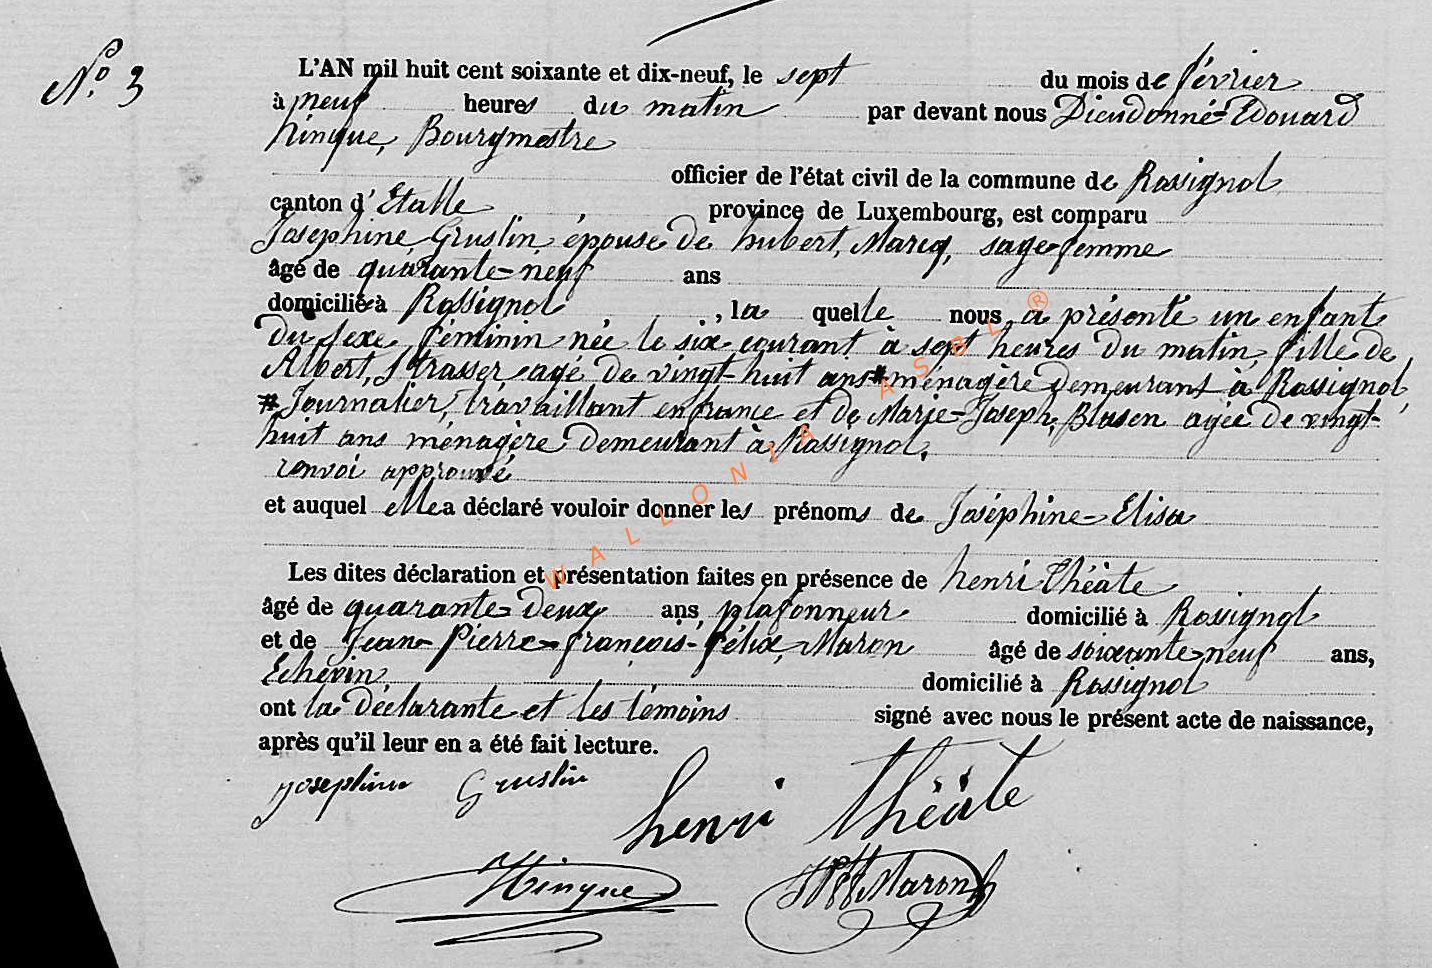 N.° 3
L'AN mil huit cent soixante et dix-neuf, le sept du mois de février
à neuf heures du matin par devant nous Dieudonné=Edouard
hinque, Bourgmestre
officier de l'état civil de la commune de Rossignol
canton d'Etalle province de Luxembourg, est comparu
Joséphine Gruslin épouse de hubert, Marcq, sage-femme
âgé de quarante=neuf ans
domiciliéà Rossignol, la quelle nous a présenté un enfant
du sexe féminin née le six courant à sept heures du matin, fille de
Albert, Strasser, agé de vingt-huit ans # ménagère demeurans à Rossignol,
# Journalier, travaillant en france et de Marie=Joseph, Blasen agée de vingt-
huit ans ménagère demeurant à Rossignol.
renvoi approuvé
et auquel elle a déclaré vouloir donner les prénoms de Joséphine=Elisa
Les dites déclaration et présentation faites en présence de henri théâte
âgé de quarante=deux ans, plafonneur domicilié à Rossignol
et de Jean=Pierre=françois-félix, Maron âgé de soixante=neuf ans,
Echevin domicilié à Rossignol
ont la déclarante et les témoins signé avec nous le présent acte de naissance,
après qu'il leur en a été fait lecture.
Josephine Gruslin
henri théâte
Hinque Maron
WALLONIA ASBL ®